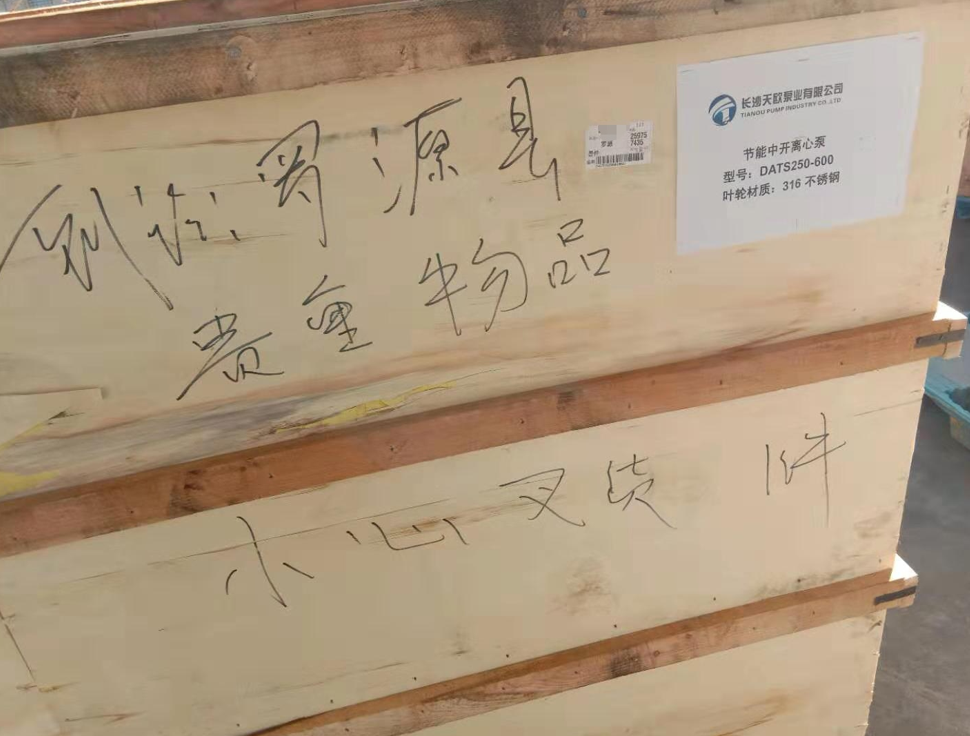 到济源县
贵重物品
小心叉货 1件
长沙天欧泵业有限公司
TIANOU PUMP INDUSTRY CO.,LTD
节能中开离心泵
型号：DATS250-600
叶轮材质：316 不锈钢
25975
7435